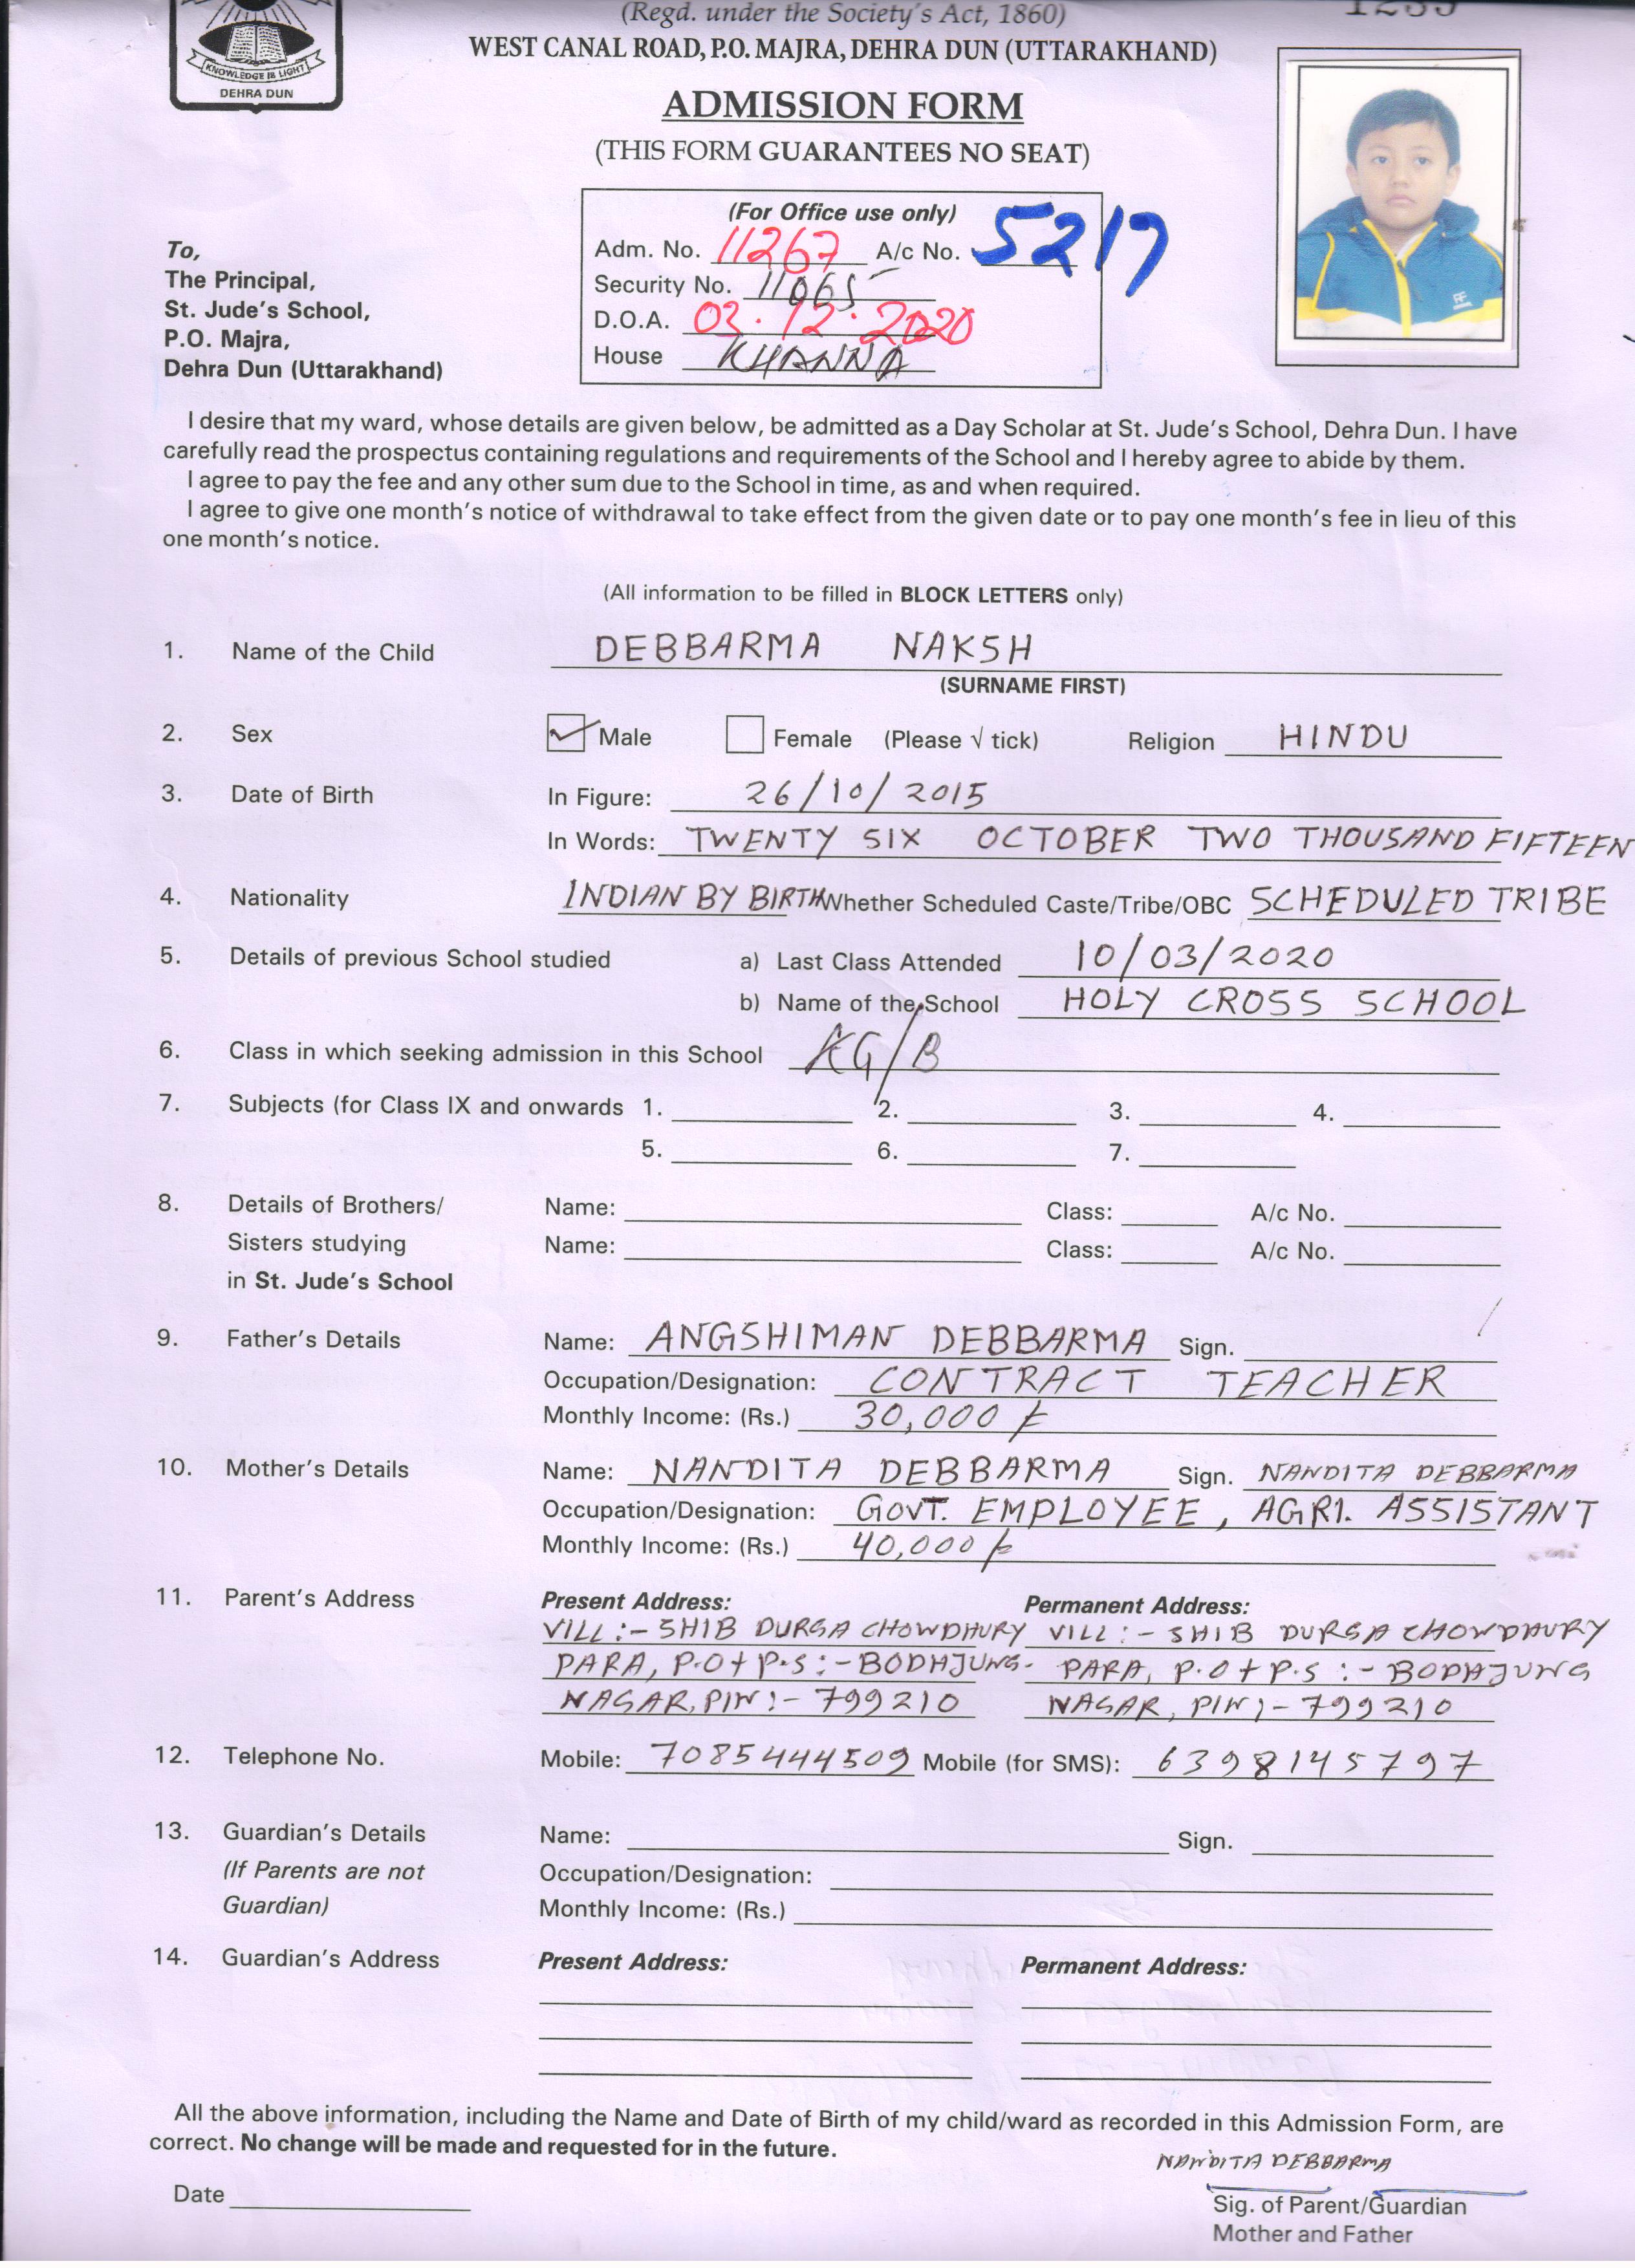 (Regd. under the Society's Act, 1860)
WEST CANAL ROAD, P.O. MAJRA, DEHRA DUN (UTTARAKHAND)
KNOWLEDGE IS LIGHT
DEHRA DUN
ADMISSION FORM
(THIS FORM GUARANTEES NO SEAT)
(For Office use only)
Adm. No. 11267 A/c No. 5217
Security No. 11065
D.O.A. 03.12.2020
House KHANNA
To,
The Principal,
St. Jude's School,
P.O. Majra,
Dehra Dun (Uttarakhand)
I desire that my ward, whose details are given below, be admitted as a Day Scholar at St. Jude's School, Dehra Dun. I have
carefully read the prospectus containing regulations and requirements of the School and I hereby agree to abide by them.
I agree to pay the fee and any other sum due to the School in time, as and when required.
I agree to give one month's notice of withdrawal to take effect from the given date or to pay one month's fee in lieu of this
one month's notice.
(All information to be filled in BLOCK LETTERS only)
1. Name of the Child DEBBARMA NAKSH
(SURNAME FIRST)
2. Sex Male Female (Please √ tick) Religion HINDU
3. Date of Birth In Figure: 26/10/2015
In Words: TWENTY SIX OCTOBER TWO THOUSAND FIFTEEN
4. Nationality INDIAN BY BIRTH Whether Scheduled Caste/Tribe/OBC SCHEDULED TRIBE
5. Details of previous School studied a) Last Class Attended 10/03/2020
b) Name of the School HOLY CROSS SCHOOL
6. Class in which seeking admission in this School KG/B
7. Subjects (for Class IX and onwards 1. 2. 3. 4.
5. 6. 7.
8. Details of Brothers/ Name: Class: A/c No.
Sisters studying Name: Class: A/c No.
in St. Jude's School
9. Father's Details Name: ANGSHIMAN DEBBARMA Sign.
Occupation/Designation: CONTRACT TEACHER
Monthly Income: (Rs.) 30,000/-
10. Mother's Details Name: NANDITA DEBBARMA Sign. NANDITA DEBBARMA
Occupation/Designation: GOVT. EMPLOYEE, AGRI. ASSISTANT
Monthly Income: (Rs.) 40,000/-
11. Parent's Address Present Address: Permanent Address:
VILL:- SHIB DURGA CHOWDHURY VILL:- SHIB DURGA CHOWDHURY
PARA, P.O+P.S:- BODHJUNG- PARA, P.O+P.S:- BODHJUNG
NAGAR, PIN:- 799210 NAGAR, PIN:- 799210
12. Telephone No. Mobile: 7085444509 Mobile (for SMS): 6398145797
13. Guardian's Details Name: Sign.
(If Parents are not Occupation/Designation:
Guardian) Monthly Income: (Rs.)
14. Guardian's Address Present Address: Permanent Address:
All the above information, including the Name and Date of Birth of my child/ward as recorded in this Admission Form, are
correct. No change will be made and requested for in the future.
NANDITA DEBBARMA
Date Sig. of Parent/Guardian
Mother and Father